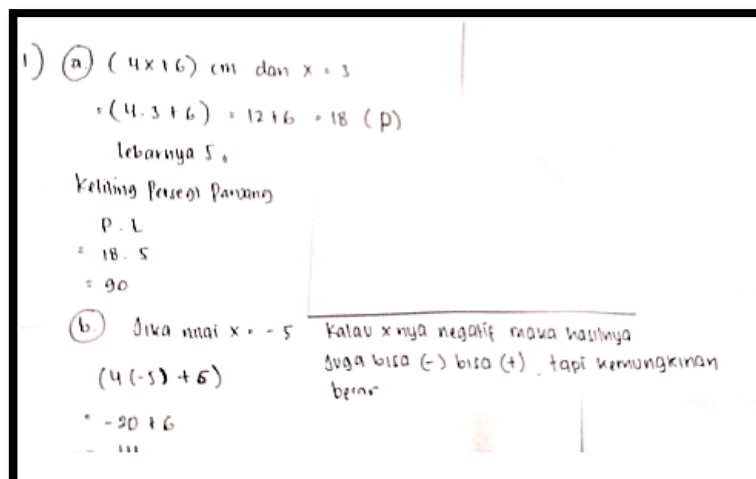 1) a) (4x+6) cm dan x = 3
= (4.3+6) = 12+6 = 18 (p)
lebarnya 5.
Keliling Persegi Panjang
P . L
= 18 . 5
= 90
b. Jika nilai x = -5
(4(-5) + 6)
= -20 + 6
Kalau x nya negatif maka hasilnya
Juga bisa (-) bisa (+). tapi kemungkinan
besar